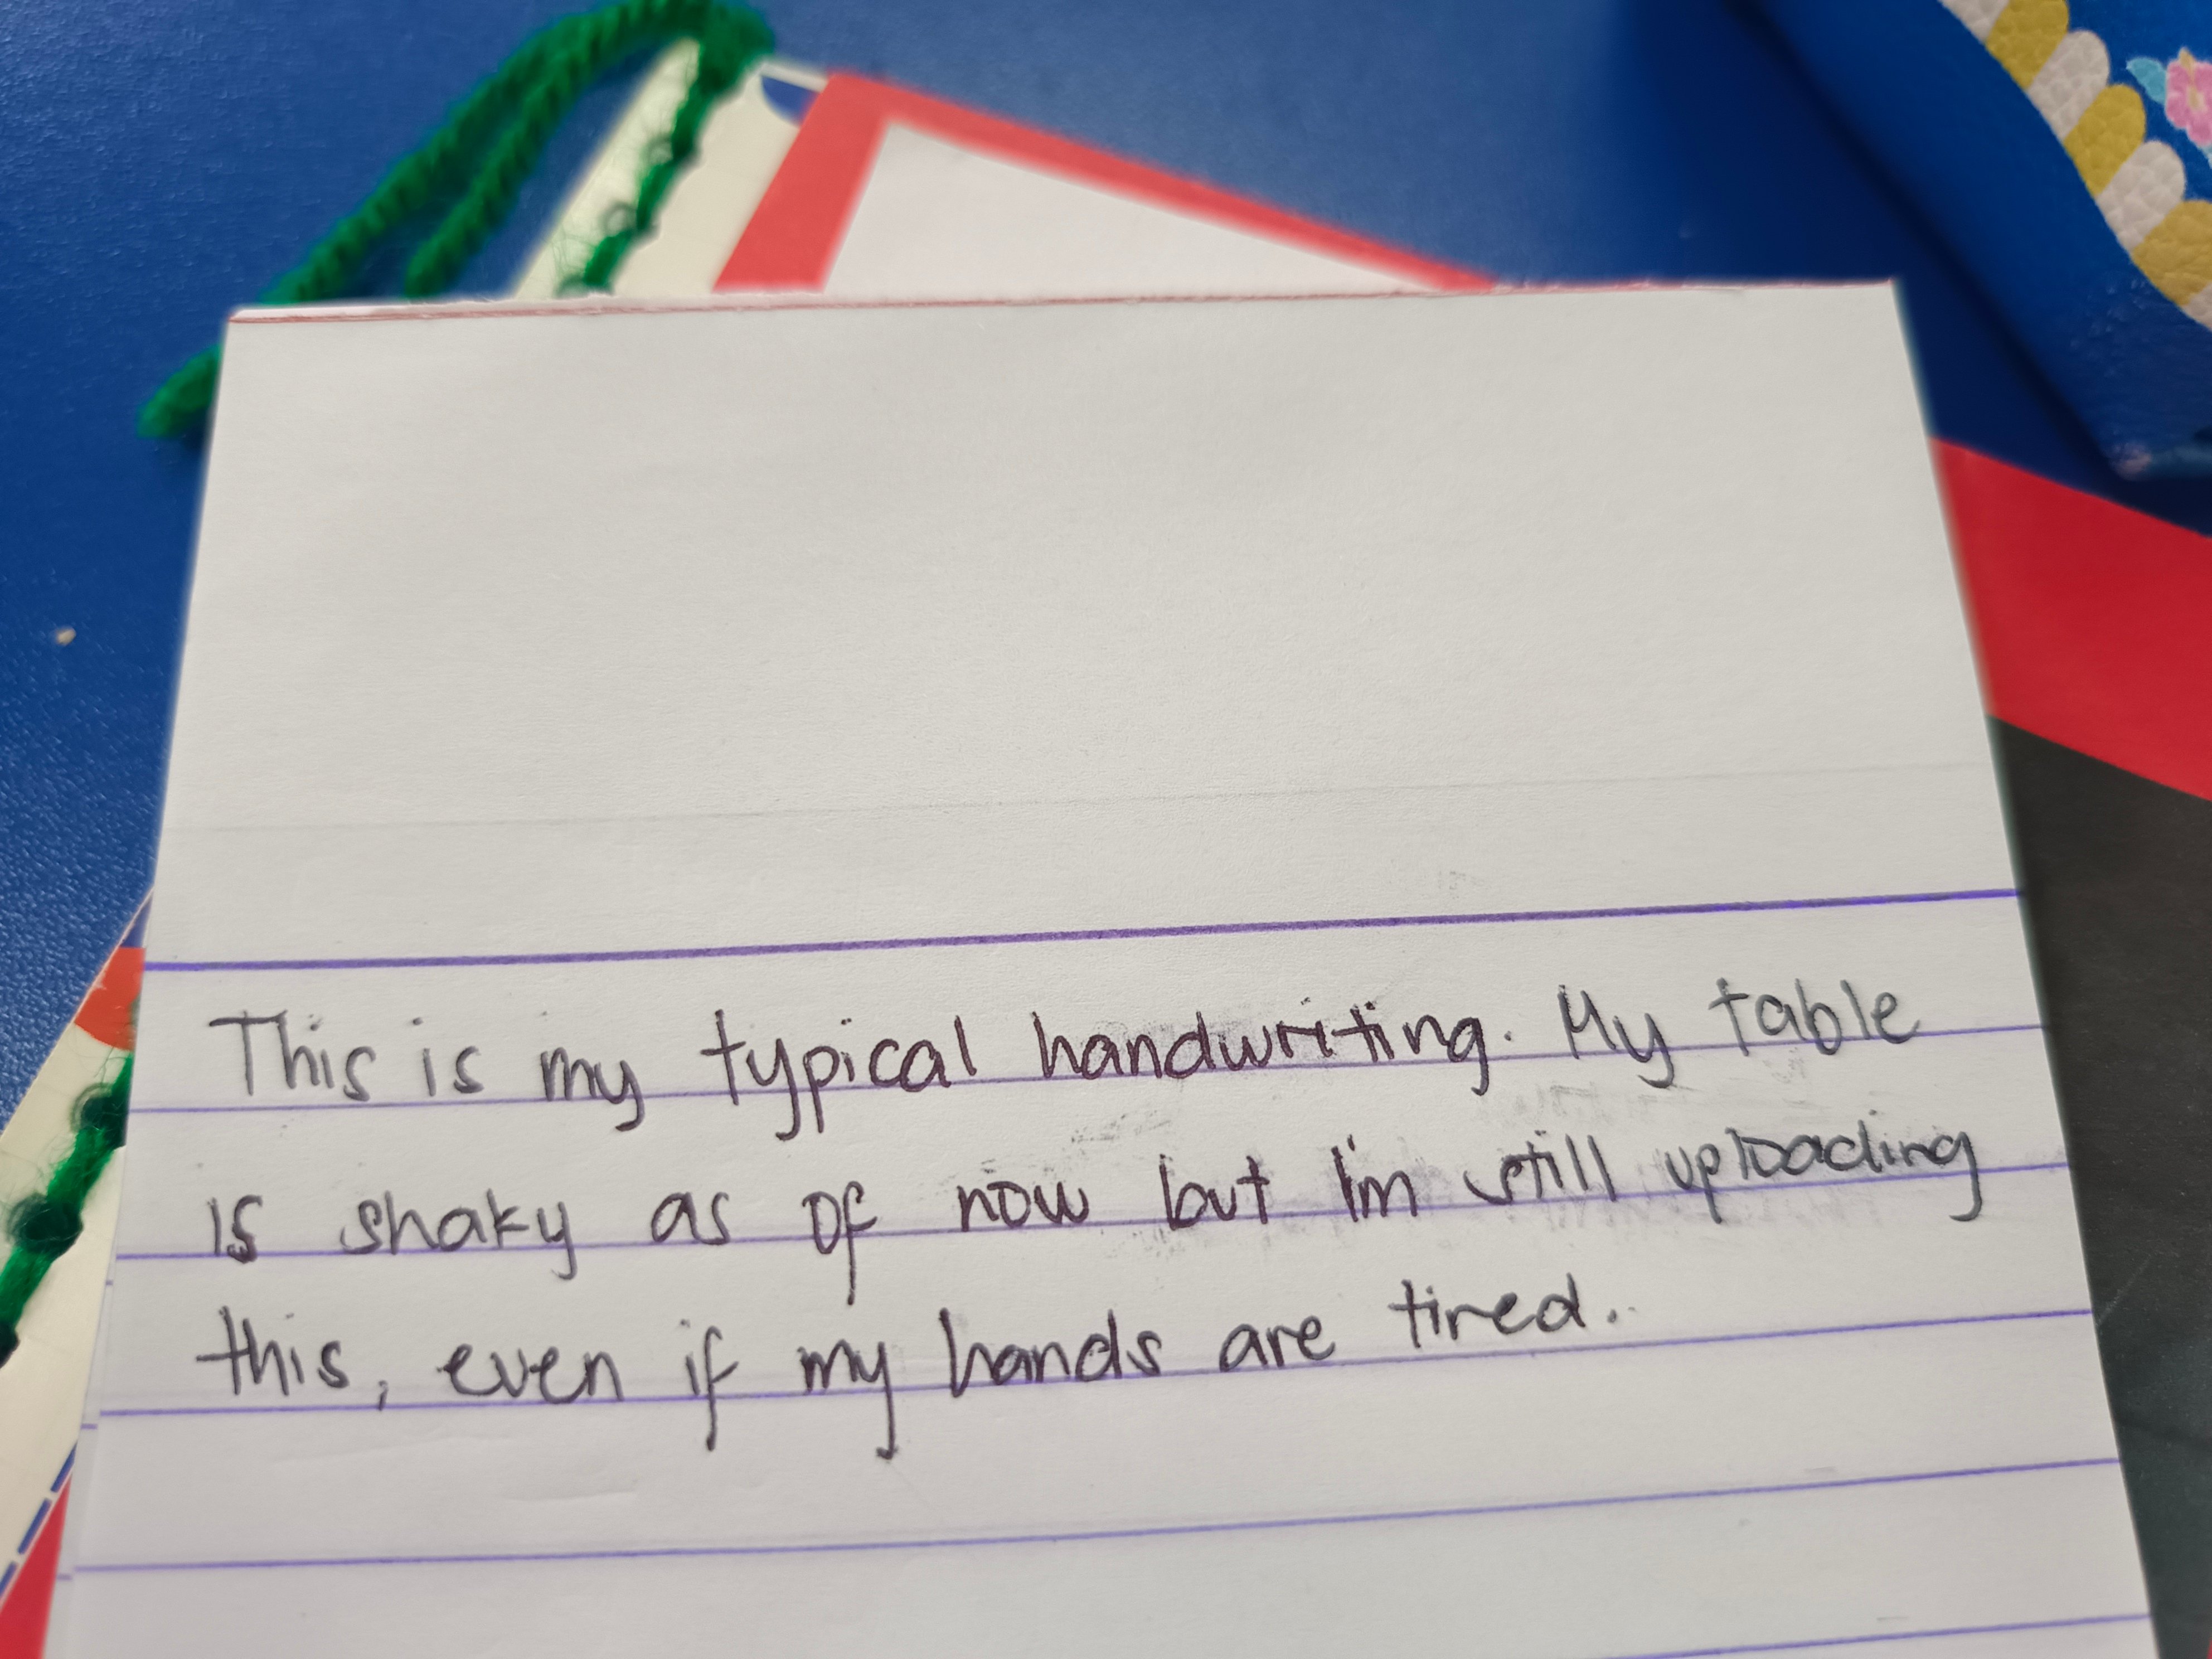 This is my typical handwriting. My table
is shaky as of now but I'm still uploading
this, even if my hands are tired.